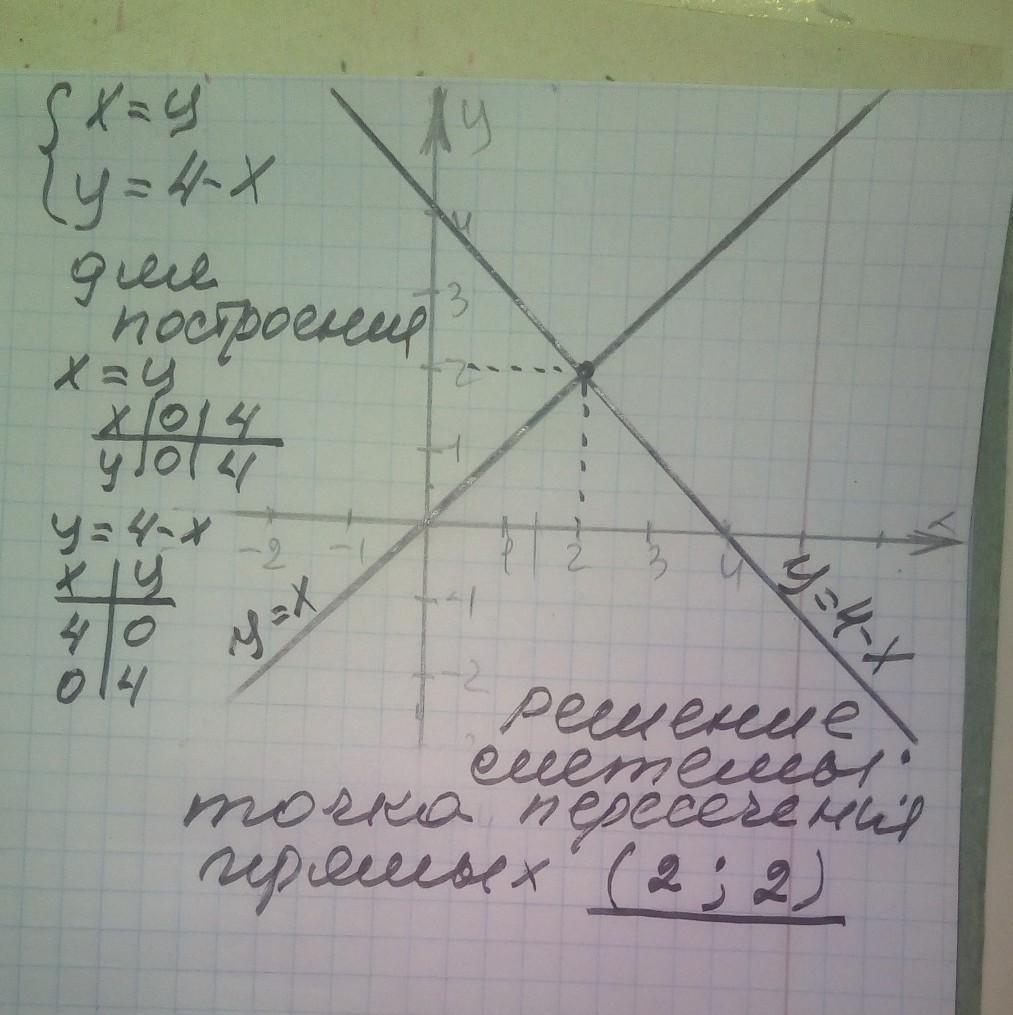 { x = y
y = 4 - x
для
построения
x = y
x | 0 | 4
y | 0 | 4
y = 4 - x
x | y
4 | 0
0 | 4
y
4
3
2
1
-2 -1 1 2 3 4 x
-1
-2
y = x
y = 4 - x
решение
системы:
точка пересечения
прямых (2 ; 2)